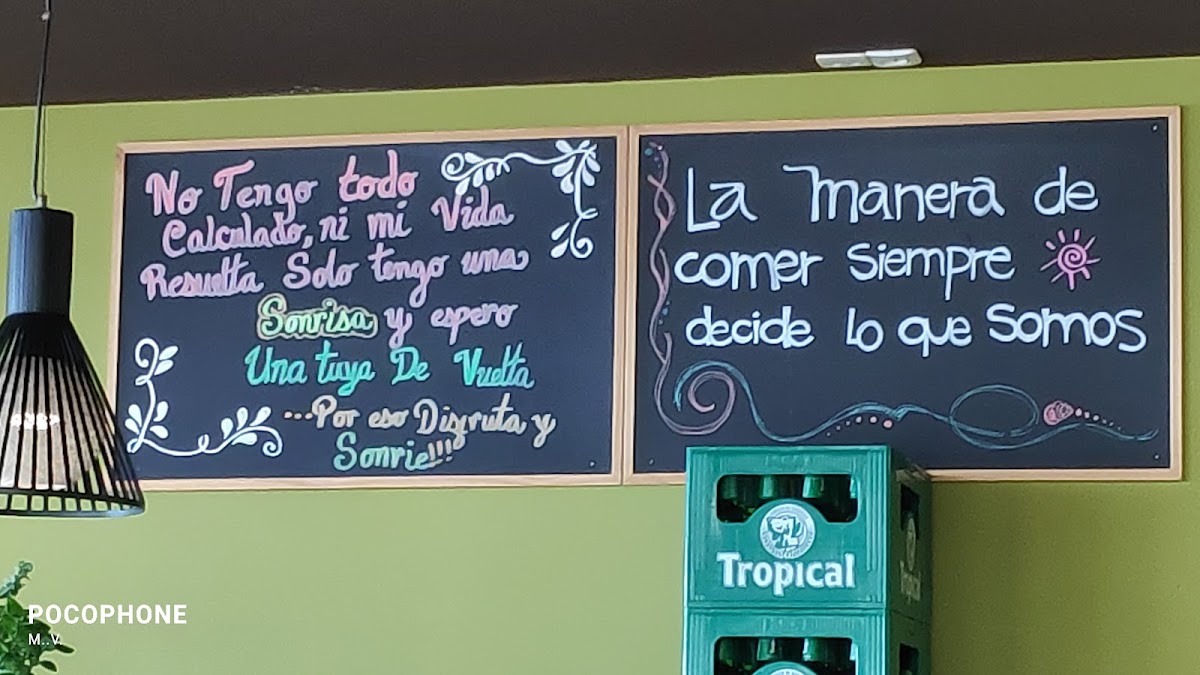 No Tengo todo
Calculado, ni mi Vida
Resuelta Solo tengo una
Sonrisa y espero
Una tuya De Vuelta
...Por eso Disfruta y
Sonrie!!!
La manera de
comer siempre
decide lo que somos
Tropical
Tropical
POCOPHONE
M..V.